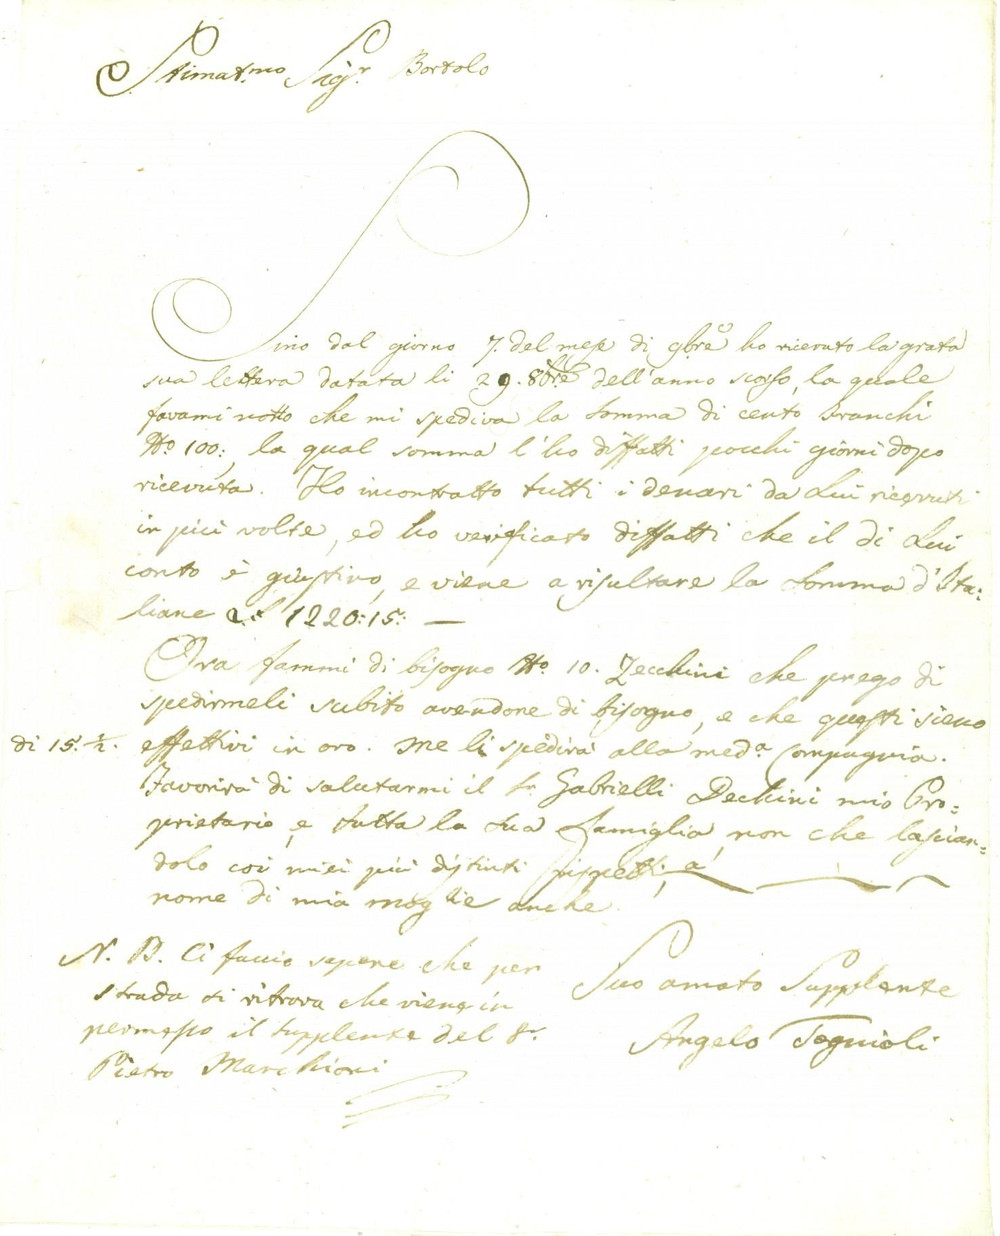 Stimat.mo Sig.r Bortolo
Sino dal giorno 7. del mese di 9bre ho ricevuto la grata
sua lettera datata li 29. 8bre dell'anno scorso, la quale
favami notto che mi spediva la somma di cento Franchi
No 100:, la qual somma l'ho diffatti pochi giorni dopo
ricevuta. Ho incontratto tutti i denari da Lui ricevuti
in più volte, ed ho verificato diffatti che il di Lui
conto è giustino, e viene a risultare la somma d'Ita:
liane L.e 1220:15: —
Ora fammi di bisogno No 10. Zecchini che prego di
spedirmeli subito avendone di bisogno, e che questi sieno
di 15. ½. effettivi in oro. Me li spedirà alla med.a Compagnia.
Favorirà di salutarmi il Sr Gabrielli Pechini mio Pro=
prietario, e tutta la sua famiglia, non che lascian=
dolo coi miei più distinti rispetti, a
nome di mia moglie anche.
N. B. Ci faccio sapere che per
strada si ritrova che viene in
permesso il supplente del Sr
Pietro Marchioni
Suo amato Supplente
Angelo Tognioli